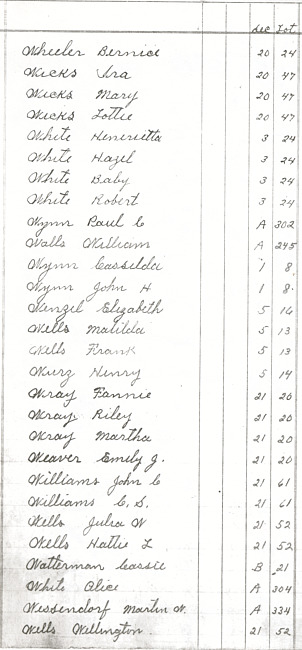 Sec Lot
Wheeler Bernice 20 24
Wicks Ira 20 47
Wicks Mary 20 47
Wicks Lottie 20 47
White Henrietta 3 24
White Hazel 3 24
White Baby 3 24
White Robert 3 24
Wynn Paul C A 302
Walls William A 245
Wynn Casselda 1 8
Wynn John H 1 8
Wenzel Elizabeth 5 16
Wells Matilda 5 13
Wells Frank 5 13
Wurz Henry 5 14
Wray Fannie 21 20
Wray Riley 21 20
Wray Martha 21 20
Weaver Emily J. 21 20
Williams John C 21 61
Williams C. S. 21 61
Wells Julia W 21 52
Wells Hattie L 21 52
Watterman Cassie B 21
White Alice A 304
Wessendorf Martin W. A 334
Wells Wellington 21 52